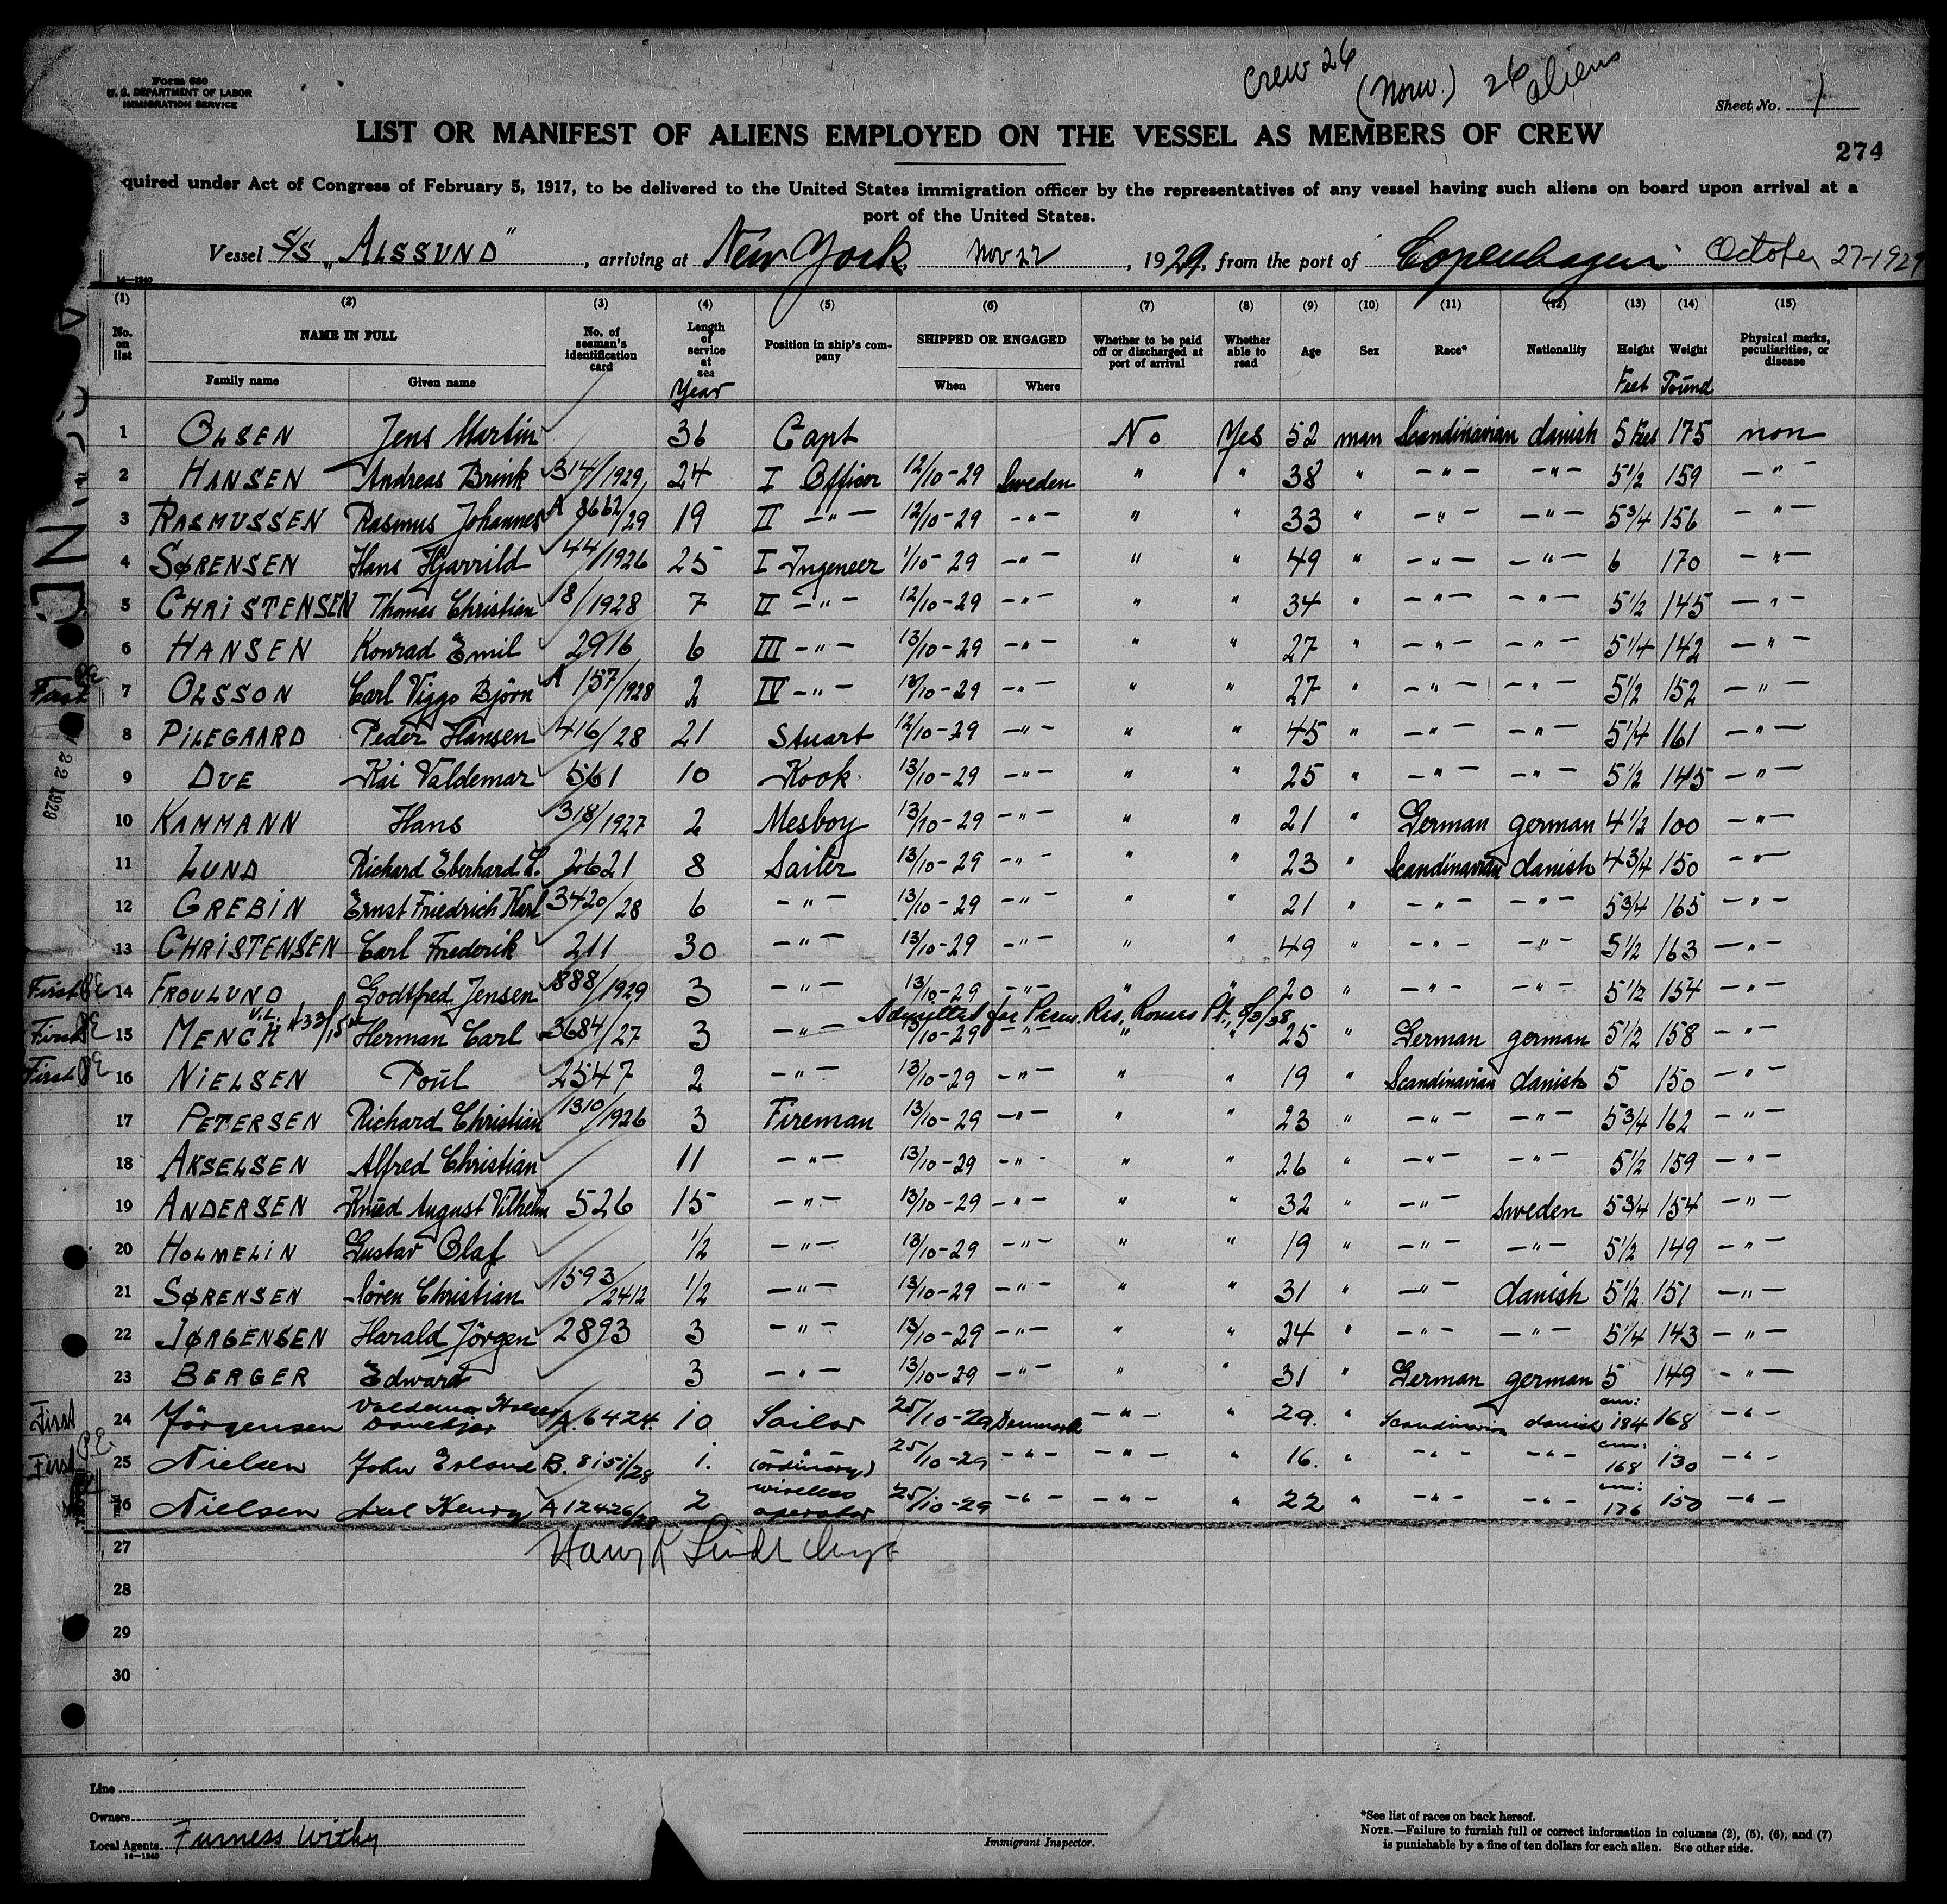 Crew 26 (Norw.) 26 aliens
Form 680
U. S. DEPARTMENT OF LABOR
IMMIGRATION SERVICE
Sheet No. 1
LIST OR MANIFEST OF ALIENS EMPLOYED ON THE VESSEL AS MEMBERS OF CREW
274
quired under Act of Congress of February 5, 1917, to be delivered to the United States immigration officer by the representatives of any vessel having such aliens on board upon arrival at a
port of the United States.
Vessel S/S „ALSSUND", arriving at New York, Nov 22, 1929, from the port of Copenhagen October 27-1929
14-1240
(1) (2) (3) (4) (5) (6) (7) (8) (9) (10) (11) (12) (13) (14) (15)
No. on list NAME IN FULL Family name Given name No. of seaman's identification card Length of service at sea Year Position in ship's company SHIPPED OR ENGAGED When Where Whether to be paid off or discharged at port of arrival Whether able to read Age Sex Race* Nationality Height Feet Weight Pound Physical marks, peculiarities, or disease
1 OLSEN Jens Martin 36 Capt No Yes 52 man Scandinavian danish 5 Feet 175 non
2 HANSEN Andreas Brink 314/1929 24 I Officer 12/10-29 Sweden " " 38 " -"- -"- 5 1/2 159 -"-
3 RASMUSSEN Rasmus Johannes A 8662/29 19 II -"- 12/10-29 -"- " " 33 " -"- -"- 5 3/4 156 -"-
4 SØRENSEN Hans Hjarrild 44/1926 25 I Ingeneer 1/10-29 -"- " " 49 " -"- -"- 6 170 -"-
5 CHRISTENSEN Thomas Christian 18/1928 7 II -"- 12/10-29 -"- " " 34 " -"- -"- 5 1/2 145 -"-
6 HANSEN Konrad Emil 2916 6 III -"- 13/10-29 -"- " " 27 " -"- -"- 5 1/4 142 -"-
First 7 OLSSON Carl Viggo Björn A 157/1928 2 IV -"- 13/10-29 -"- " " 27 " -"- -"- 5 1/2 152 -"-
8 PILEGAARD Peder Hansen 416/28 21 Stuart 12/10-29 -"- " " 45 " -"- -"- 5 1/4 161 -"-
9 DUE Kai Valdemar 561 10 Kook 13/10-29 -"- " " 25 " -"- -"- 5 1/2 145 -"-
10 KAMMANN Hans 318/1927 2 Mesboy 13/10-29 -"- " " 21 " German german 4 1/2 100 -"-
11 LUND Richard Eberhard S. 2621 8 Sailer 13/10-29 -"- " " 23 " Scandinavian danish 4 3/4 150 -"-
12 GREBIN Ernst Friedrich Karl 3420/28 6 -"- 13/10-29 -"- " " 21 " -"- -"- 5 3/4 165 -"-
13 CHRISTENSEN Carl Frederik 211 30 -"- 13/10-29 " " 49 " -"- -"- 5 1/2 163 -"-
First 14 FROULUND Godtfred Jensen 888/1929 3 -"- 13/10-29 -"- " " 20 " -"- -"- 5 1/2 154 -"-
V.L. Admitted for Perm. Res. Rouses Pt., 5/3/38
First 15 MENCH Herman Carl 3684/27 3 -"- 13/10-29 -"- " " 25 " German german 5 1/2 158 -"-
First 16 NIELSEN Poul 2547 2 -"- 13/10-29 -"- " " 19 " Scandinavian danish 5 150 -"-
17 PETERSEN Richard Christian 1310/1926 3 Fireman 13/10-29 -"- " " 23 " -"- -"- 5 3/4 162 -"-
18 AKSELSEN Alfred Christian 11 -"- 13/10-29 -"- " " 26 " -"- -"- 5 1/2 159 -"-
19 ANDERSEN Knud August Vilhelm 526 15 -"- 13/10-29 -"- " " 32 " -"- Sweden 5 3/4 154 -"-
20 HOLMELIN Gustav Olaf 1/2 -"- 13/10-29 -"- " " 19 " -"- -"- 5 1/2 149 -"-
21 SØRENSEN Sören Christian 1593/2412 1/2 -"- 13/10-29 -"- " " 31 " -"- danish 5 1/2 151 -"-
22 JØRGENSEN Harald Jörgen 2893 3 -"- 13/10-29 -"- " " 24 " -"- -"- 5 1/4 143 -"-
23 BERGER Edward 3 -"- 13/10-29 -"- " " 31 " German german 5 149 -"-
First 24 Jörgensen Valdemar A. 6424. 10 Sailor 25/10-29 Denmark -"- " 29. " Scandinavian danish cm: 184 168 -"-
First 25 Nielsen John Erland B. 8151/28 1. (ordinary) 25/10-29 -"- -"- " 16. " -"- -"- cm: 168 130 -"-
26 Nielsen Axel Henry A 12426/28 2 wireless operator 25/10-29 -"- -"- " 22 " -"- -"- cm: 176 150 -"-
27
28
29
30
22 1929
Line
Owners
Local Agents Furness Withy
14-1240
Immigrant Inspector.
*See list of races on back hereof.
NOTE.—Failure to furnish full or correct information in columns (2), (5), (6), and (7)
is punishable by a fine of ten dollars for each alien. See other side.